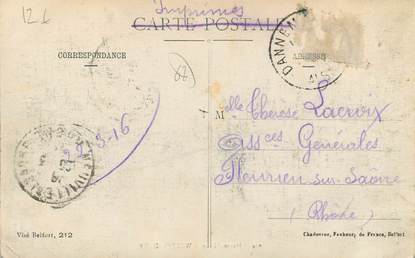 12 €
Imprimés
CARTE POSTALE
CORRESPONDANCE
ADRESSE
DANNEM
ALS
62
Melle Thérèse Lacroix
Assces Générales
Fleurieu-sur-Saône
(Rhône)
22-3-16
NEUVILLE
Visé Belfort, 212
Chadourne, Faubourg de France, Belfort